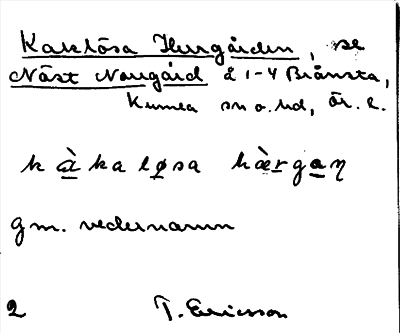 Kaklösa Herrgården, se
Näst Norrgård å 1-4 Brånsta,
Kumla sn o. hd, Ör. l.
k à ka løsa hærgaŋ
gm. vedernamn
2 T. Ericsson